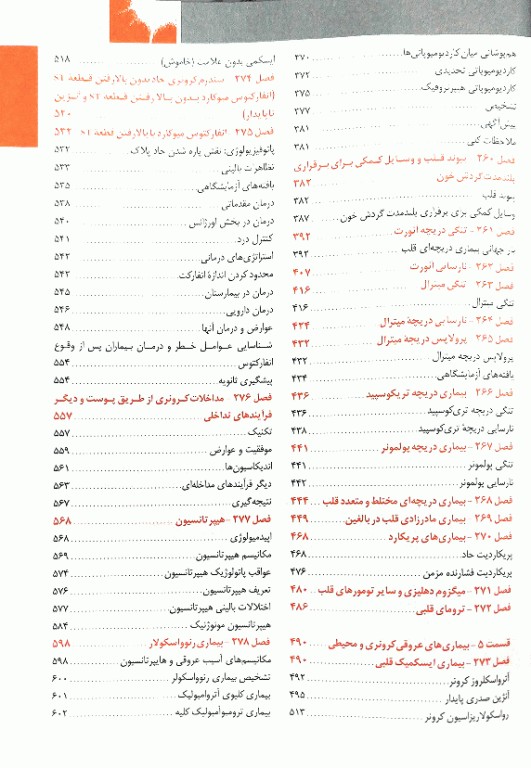 همپوشانی میان کاردیومیوپاتی‌ها ۳۷۰
کاردیومیوپاتی تحدیدی ۳۷۲
کاردیومیوپاتی هیپرتروفیک ۳۷۵
تشخیص ۳۷۷
پیش‌آگهی ۳۸۱
ملاحظات کلی ۳۸۱
فصل ۲۶۰ - پیوند قلب و وسایل کمکی برای برقراری
بلندمدت گردش خون ۳۸۲
پیوند قلب ۳۸۲
وسایل کمکی برای برقراری بلندمدت گردش خون ۳۸۷
فصل ۲۶۱ - تنگی دریچه آئورت ۳۹۲
بار جهانی بیماری دریچه‌ای قلب ۳۹۲
فصل ۲۶۲ - نارسایی آئورت ۴۰۷
فصل ۲۶۳ - تنگی میترال ۴۱۶
تنگی میترال ۴۱۶
فصل ۲۶۴ - نارسایی دریچهٔ میترال ۴۲۴
فصل ۲۶۵ - پرولاپس دریچهٔ میترال ۴۳۲
پرولاپس دریچه میترال ۴۳۲
یافته‌های آزمایشگاهی ۴۳۴
فصل ۲۶۶ - بیماری دریچه تریکوسپید ۴۳۶
تنگی دریچه تری‌کوسپید ۴۳۶
نارسایی دریچهٔ تری‌کوسپید ۴۳۸
فصل ۲۶۷ - بیماری دریچه پولمونر ۴۴۱
تنگی پولمونر ۴۴۱
نارسایی پولمونر ۴۴۲
فصل ۲۶۸ - بیماری دریچه‌ای مختلط و متعدد قلب ۴۴۴
فصل ۲۶۹ - بیماری مادرزادی قلب در بالغین ۴۴۹
فصل ۲۷۰ - بیماری‌های پریکارد ۴۶۸
پریکاردیت حاد ۴۶۸
پریکاردیت فشارنده مزمن ۴۷۶
فصل ۲۷۱ - میگزوم دهلیزی و سایر تومورهای قلب ۴۸۰
فصل ۲۷۲ - ترومای قلبی ۴۸۶
قسمت ۵ - بیماری‌های عروقی کرونری و محیطی ۴۹۰
فصل ۲۷۳ - بیماری ایسکمیک قلبی ۴۹۰
آترواسکلروز کرونر ۴۹۲
آنژین صدری پایدار ۴۹۵
رواسکولاریزاسیون کرونر ۵۱۳
ایسکمی بدون علامت (خاموش) ۵۱۸
فصل ۲۷۴ - سندرم کرونری حاد بدون بالا رفتن قطعه ST
(انفارکتوس میوکارد بدون بالا رفتن قطعه ST و آنژین
ناپایدار) ۵۲۰
فصل ۲۷۵ - انفارکتوس میوکارد با بالا رفتن قطعه ST ۵۳۲
پاتوفیزیولوژی: نقش پاره شدن حاد پلاک ۵۳۲
تظاهرات بالینی ۵۳۳
یافته‌های آزمایشگاهی ۵۳۵
درمان مقدماتی ۵۳۸
درمان در بخش اورژانس ۵۴۰
کنترل درد ۵۴۱
استراتژی‌های درمانی ۵۴۲
محدود کردن اندازهٔ انفارکت ۵۴۲
درمان در بیمارستان ۵۴۵
درمان دارویی ۵۴۶
عوارض و درمان آنها ۵۴۸
شناسایی عوامل خطر و درمان بیماران پس از وقوع
انفارکتوس ۵۵۴
پیشگیری ثانویه ۵۵۴
فصل ۲۷۶ - مداخلات کرونری از طریق پوست و دیگر
فرآیندهای تداخلی ۵۵۷
تکنیک ۵۵۷
موفقیت و عوارض ۵۵۹
اندیکاسیون‌ها ۵۶۱
دیگر فرآیندهای مداخله‌ای ۵۶۳
نتیجه‌گیری ۵۶۷
فصل ۲۷۷ - هیپرتانسیون ۵۶۸
اپیدمیولوژی ۵۶۸
مکانیسم هیپرتانسیون ۵۶۹
عواقب پاتولوژیک هیپرتانسیون ۵۷۴
تعریف هیپرتانسیون ۵۷۶
اختلالات بالینی هیپرتانسیون ۵۷۷
هیپرتانسیون مونوژنیک ۵۸۴
فصل ۲۷۸ - بیماری رنوواسکولار ۵۹۸
مکانیسم‌های آسیب عروقی و هایپرتانسیون ۵۹۸
تشخیص بیماری رنوواسکولر ۶۰۰
بیماری کلیوی آتروآمبولیک ۶۰۱
بیماری ترومبوآمبولیک کلیه ۶۰۲